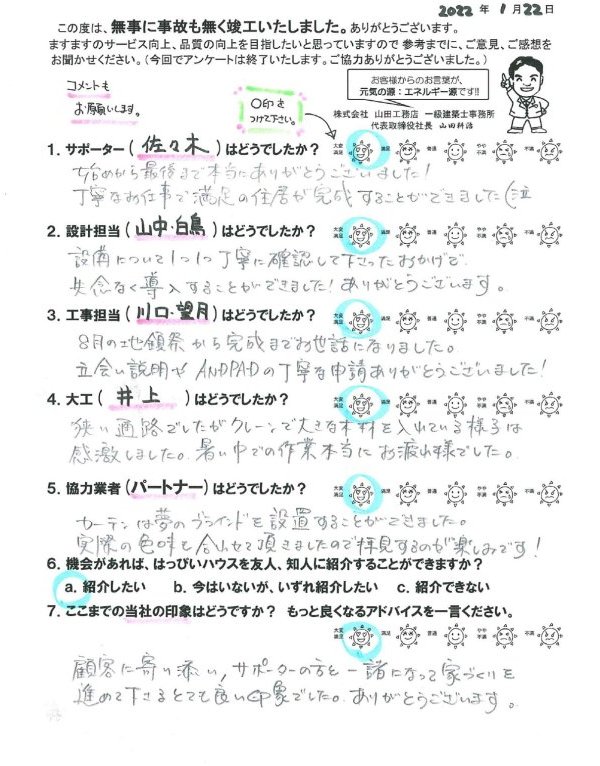 2022 年 1 月 22 日
この度は、無事に事故も無く竣工いたしました。ありがとうございます。
ますますのサービス向上、品質の向上を目指したいと思っていますので 参考までに、ご意見、ご感想を
お聞かせください。(今回でアンケートは終了いたします。ご協力ありがとうございました。)
コメントも
お願いします。
○印を
つけて下さい。
お客様からのお言葉が、
元気の源:エネルギー源です!!
株式会社 山田工務店 一級建築士事務所
代表取締役社長 山田耕治
1. サポーター( 佐々木 )はどうでしたか?
大変満足 満足 普通 やや不満 不満
始めから最後まで本当にありがとうございました!
丁寧なお仕事で満足の住居が完成することができました(泣
2. 設計担当(山中・白鳥)はどうでしたか?
大変満足 満足 普通 やや不満 不満
設備について1つ1つ丁寧に確認して下さったおかげで、
失念なく導入することができました!ありがとうございます。
3. 工事担当(川口・望月)はどうでしたか?
大変満足 満足 普通 やや不満 不満
8月の地鎮祭から完成までお世話になりました。
立会い説明やANDPADの丁寧な申請ありがとうございました!
4. 大工( 井上 )はどうでしたか?
大変満足 満足 普通 やや不満 不満
狭い通路でしたがクレーンで大きな木材を入れている様子は
感激しました。暑い中での作業本当にお疲れ様でした。
5. 協力業者(パートナー)はどうでしたか?
大変満足 満足 普通 やや不満 不満
カーテンは夢のブラインドを設置することができました。
実際の色味を合わせて頂きましたので拝見するのが楽しみです!
6. 機会があれば、はっぴいハウスを友人、知人に紹介することができますか?
a. 紹介したい b. 今はいないが、いずれ紹介したい c. 紹介できない
7. ここまでの当社の印象はどうですか? もっと良くなるアドバイスを一言ください。
大変満足 満足 普通 やや不満 不満
顧客に寄り添い,サポーターの方と一緒になって家づくりを
進めて下さるとても良い印象でした。ありがとうございます。